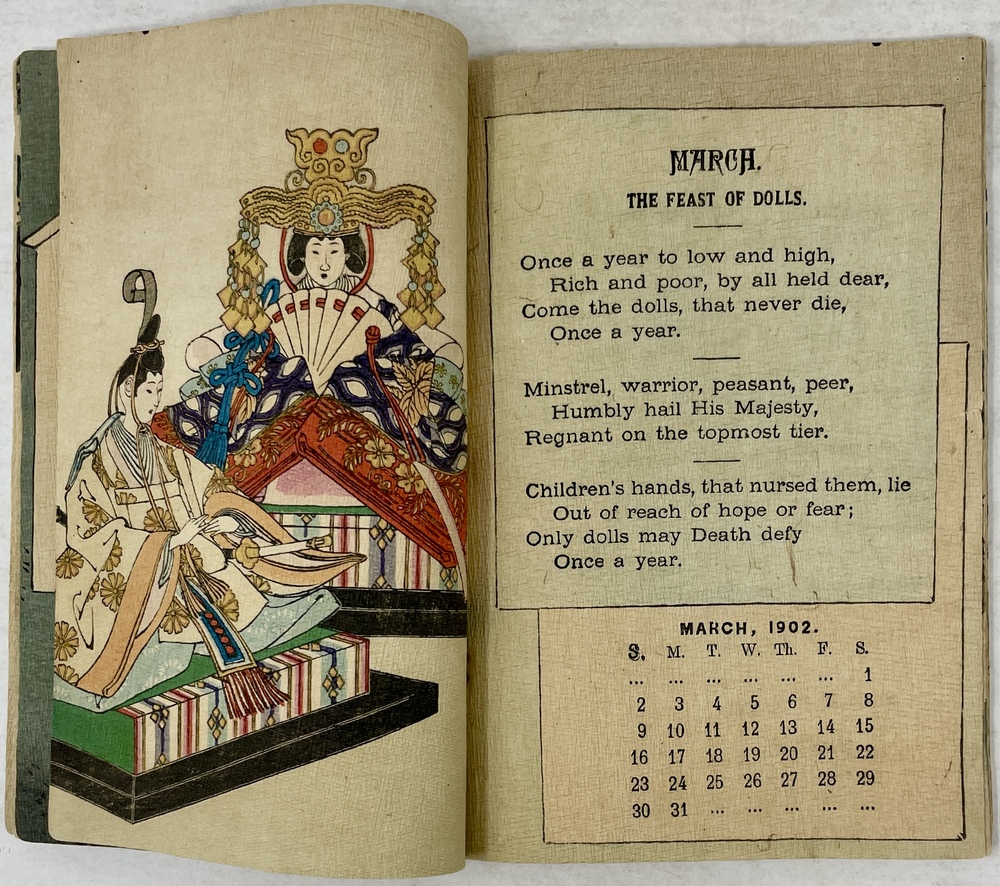 MARCH.
THE FEAST OF DOLLS.
Once a year to low and high,
Rich and poor, by all held dear,
Come the dolls, that never die,
Once a year.
Minstrel, warrior, peasant, peer,
Humbly hail His Majesty,
Regnant on the topmost tier.
Children's hands, that nursed them, lie
Out of reach of hope or fear;
Only dolls may Death defy
Once a year.
MARCH, 1902.
S. M. T. W. Th. F. S.
... ... ... ... ... ... 1
2 3 4 5 6 7 8
9 10 11 12 13 14 15
16 17 18 19 20 21 22
23 24 25 26 27 28 29
30 31 ... ... ... ... ...